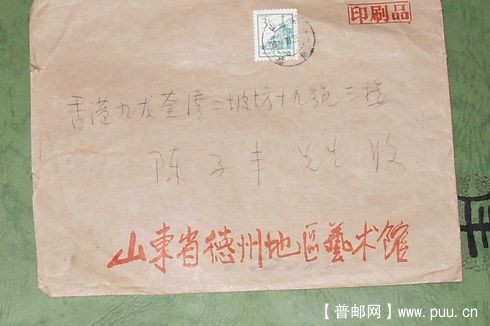 印刷品
香港九龙荃湾二坡坊十九號三楼
陈子丰 先生 收
山東省德州地區藝术馆
【普邮网】www.puu.cn